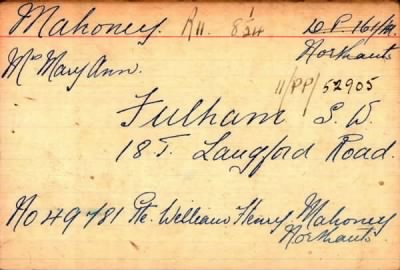 Mahoney. R11. 8/1/24 D.P. 164/M.
Mrs Mary Ann. Northants
11/PP/52905
Fulham S.W.
18 J. Langford Road.
No 49781 Pte. William Henry Mahoney
Northants